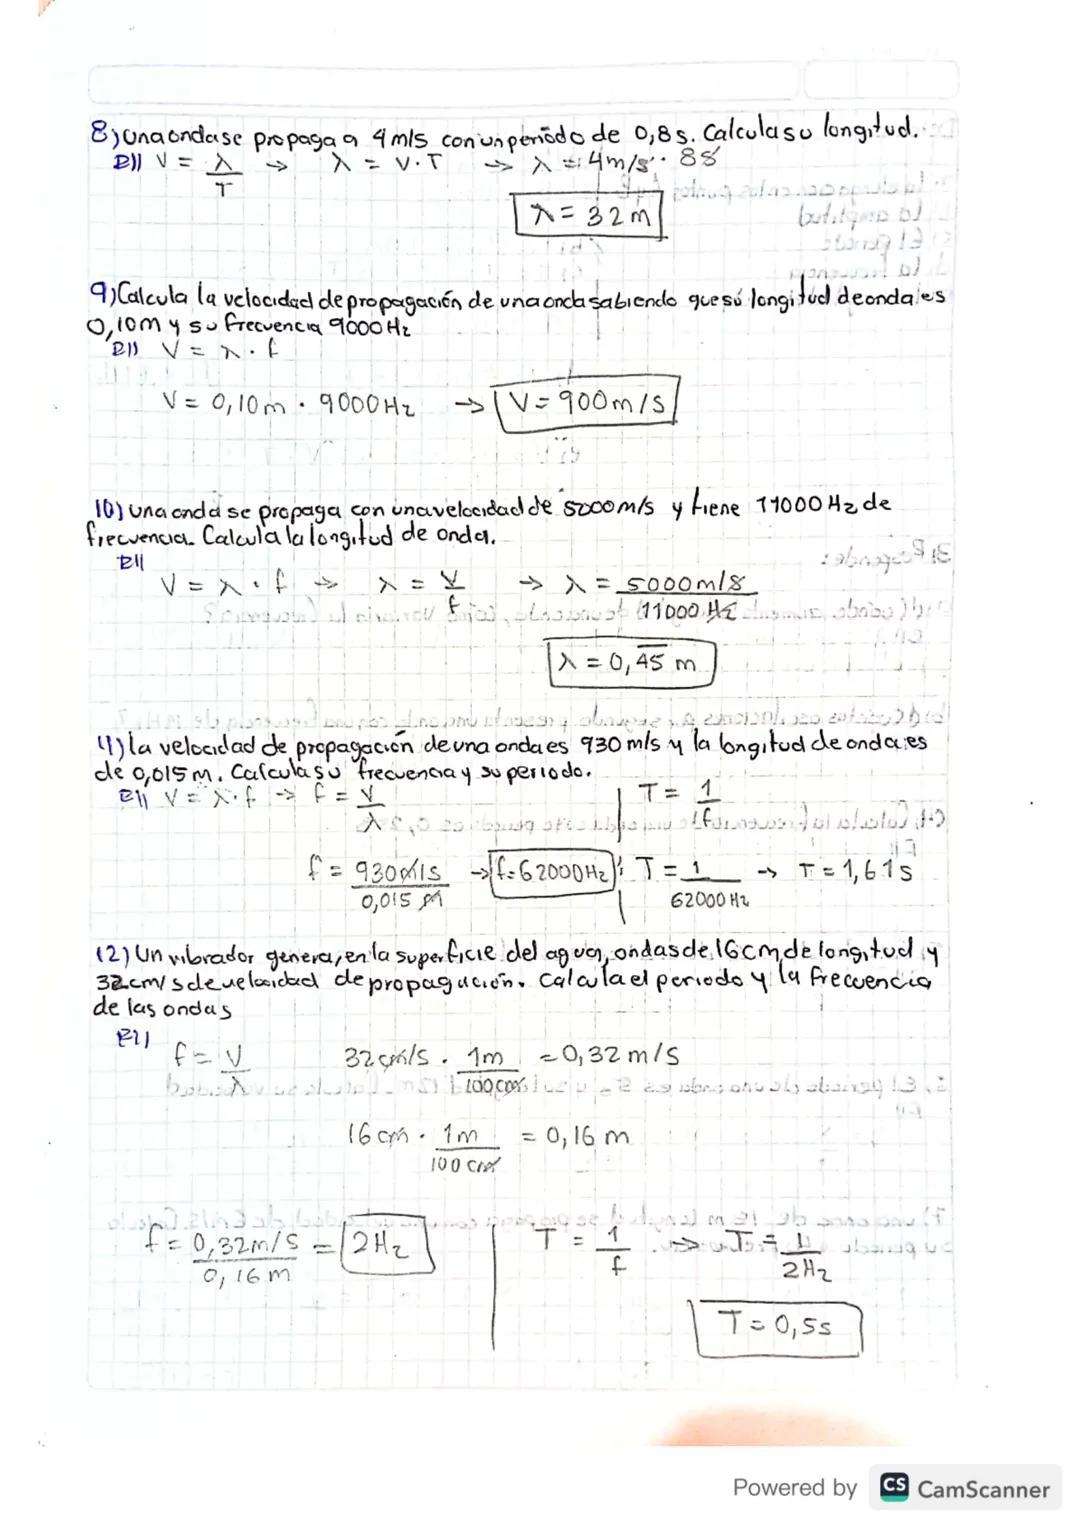 8) Una onda se propaga a 4 m/s con un periodo de 0,8 s. Calcula su longitud.
R// V = λ/T → λ = V·T → λ = 4m/s · 8s
λ = 32 m
9) Calcula la velocidad de propagación de una onda sabiendo que su longitud de onda es
0,10m y su frecuencia 9000 Hz
R// V = λ · f
V = 0,10m · 9000 Hz → V = 900 m/s
10) una onda se propaga con una velocidad de 5000 m/s y tiene 11000 Hz de
frecuencia. Calcula la longitud de onda.
R//
V = λ · f → λ = V/f → λ = 5000 m/s / 11000 Hz
λ = 0,4̅5̅ m
11) la velocidad de propagación de una onda es 930 m/s y la longitud de onda es
de 0,015 m. Calcula su frecuencia y su periodo.
R// V = λ·f → f = V/λ T = 1/f
f = 930 m/s / 0,015 m → f = 62000 Hz T = 1 / 62000 Hz → T = 1,61 s
12) Un vibrador genera, en la superficie del agua, ondas de 16 cm de longitud y
32 cm/s de velocidad de propagación. Calcula el periodo y la frecuencia
de las ondas
R//
f = V/λ 32 cm/s · 1m/100 cm = 0,32 m/s
16 cm · 1m/100 cm = 0,16 m
f = 0,32 m/s / 0,16 m = 2 Hz T = 1/f → T = 1/2 Hz
T = 0,5 s
Powered by CS CamScanner